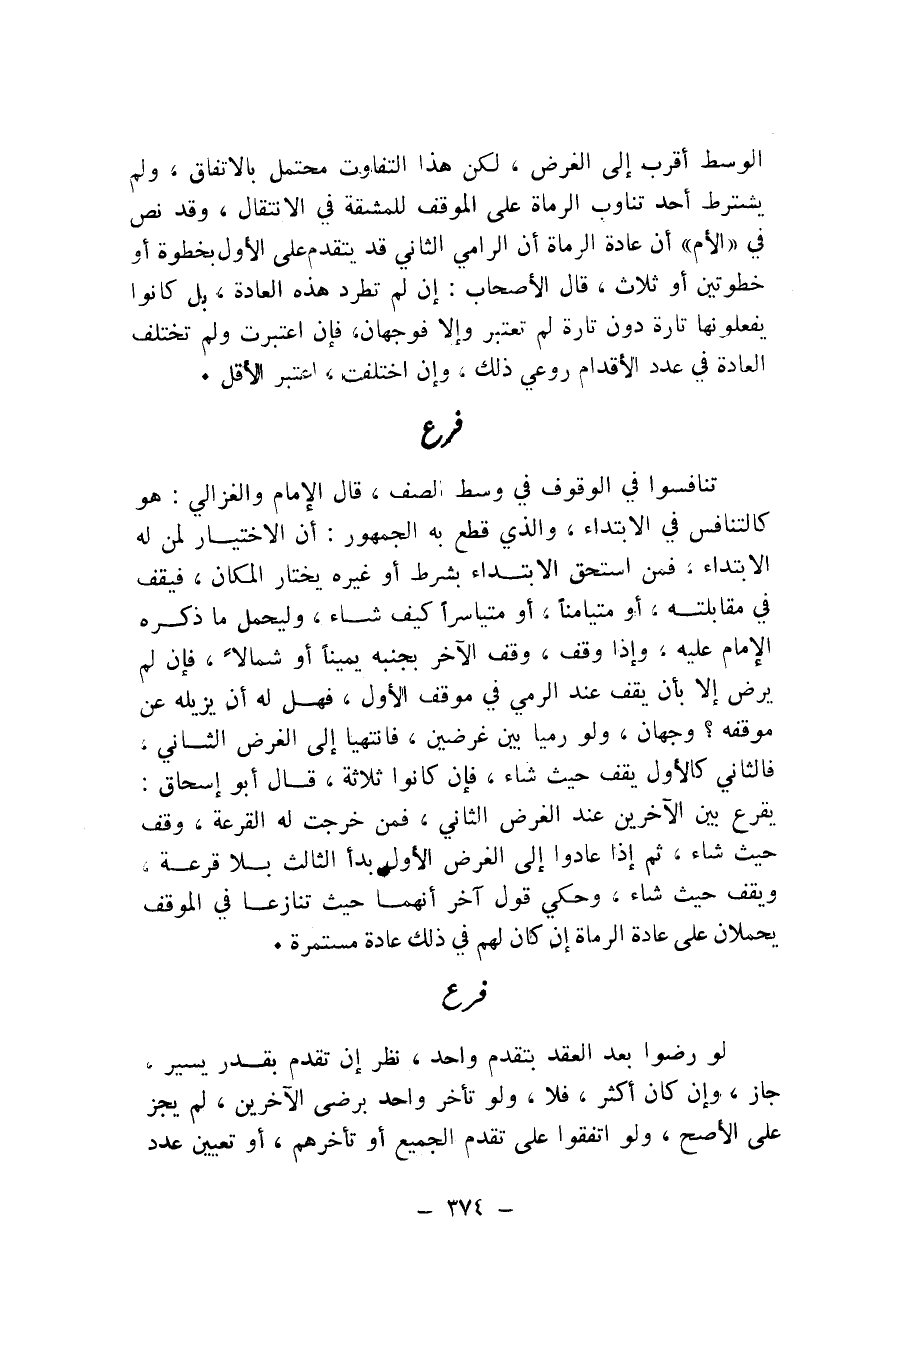 الوسط أقرب إلى الغرض ، لكن هذا التفاوت محتمل بالاتفاق ، ولم
يشترط أحد تناوب الرماة على الموقف للمشقة في الانتقال ، وقد نص
في «الأم» أن عادة الرماة أن الرامي الثاني قد يتقدم على الأول بخطوة أو
خطوتين أو ثلاث ، قال الأصحاب : إن لم تطرد هذه العادة ، بل كانوا
يفعلونها تارة دون تارة لم تعتبر وإلا فوجهان، فإن اعتبرت ولم تختلف
العادة في عدد الأقدام روعي ذلك ، وإن اختلفت ، اعتبر الأقل .
فرع
تنافسوا في الوقوف في وسط الصف ، قال الإمام والغزالي : هو
كالتنافس في الابتداء ، والذي قطع به الجمهور : أن الاختيـــار لمن له
الابتداء ، فمن استحق الابتــداء بشرط أو غيره يختار المكان ، فيقف
في مقابلتــه ، أو متيامناً ، أو متياسراً كيف شــاء ، وليحمل ما ذكــره
الإمام عليه ، وإذا وقف ، وقف الآخر بجنبه يميناً أو شمالاً ، فإن لم
يرض إلا بأن يقف عند الرمي في موقف الأول ، فهــل له أن يزيله عن
موقفه ؟ وجهان ، ولو رميا بين غرضين ، فانتهيا إلى الغرض الثــاني ،
فالثاني كالأول يقف حيث شاء ، فإن كانوا ثلاثة ، قــال أبو إسحاق :
يقرع بين الآخرين عند الغرض الثاني ، فمن خرجت له القرعة ، وقف
حيث شاء ، ثم إذا عادوا إلى الغرض الأول بدأ الثالث بــلا قرعــة ،
ويقف حيث شاء ، وحكي قول آخر أنهمــا حيث تنازعــا في الموقف
يحملان على عادة الرماة إن كان لهم في ذلك عادة مستمرة .
فرع
لو رضوا بعد العقد بتقدم واحد ، نظر إن تقدم بقــدر يسير ،
جاز ، وإن كان أكثر ، فلا ، ولو تأخر واحد برضى الآخرين ، لم يجز
على الأصح ، ولو اتفقوا على تقدم الجميع أو تأخرهم ، أو تعيين عدد
– ٣٧٤ –